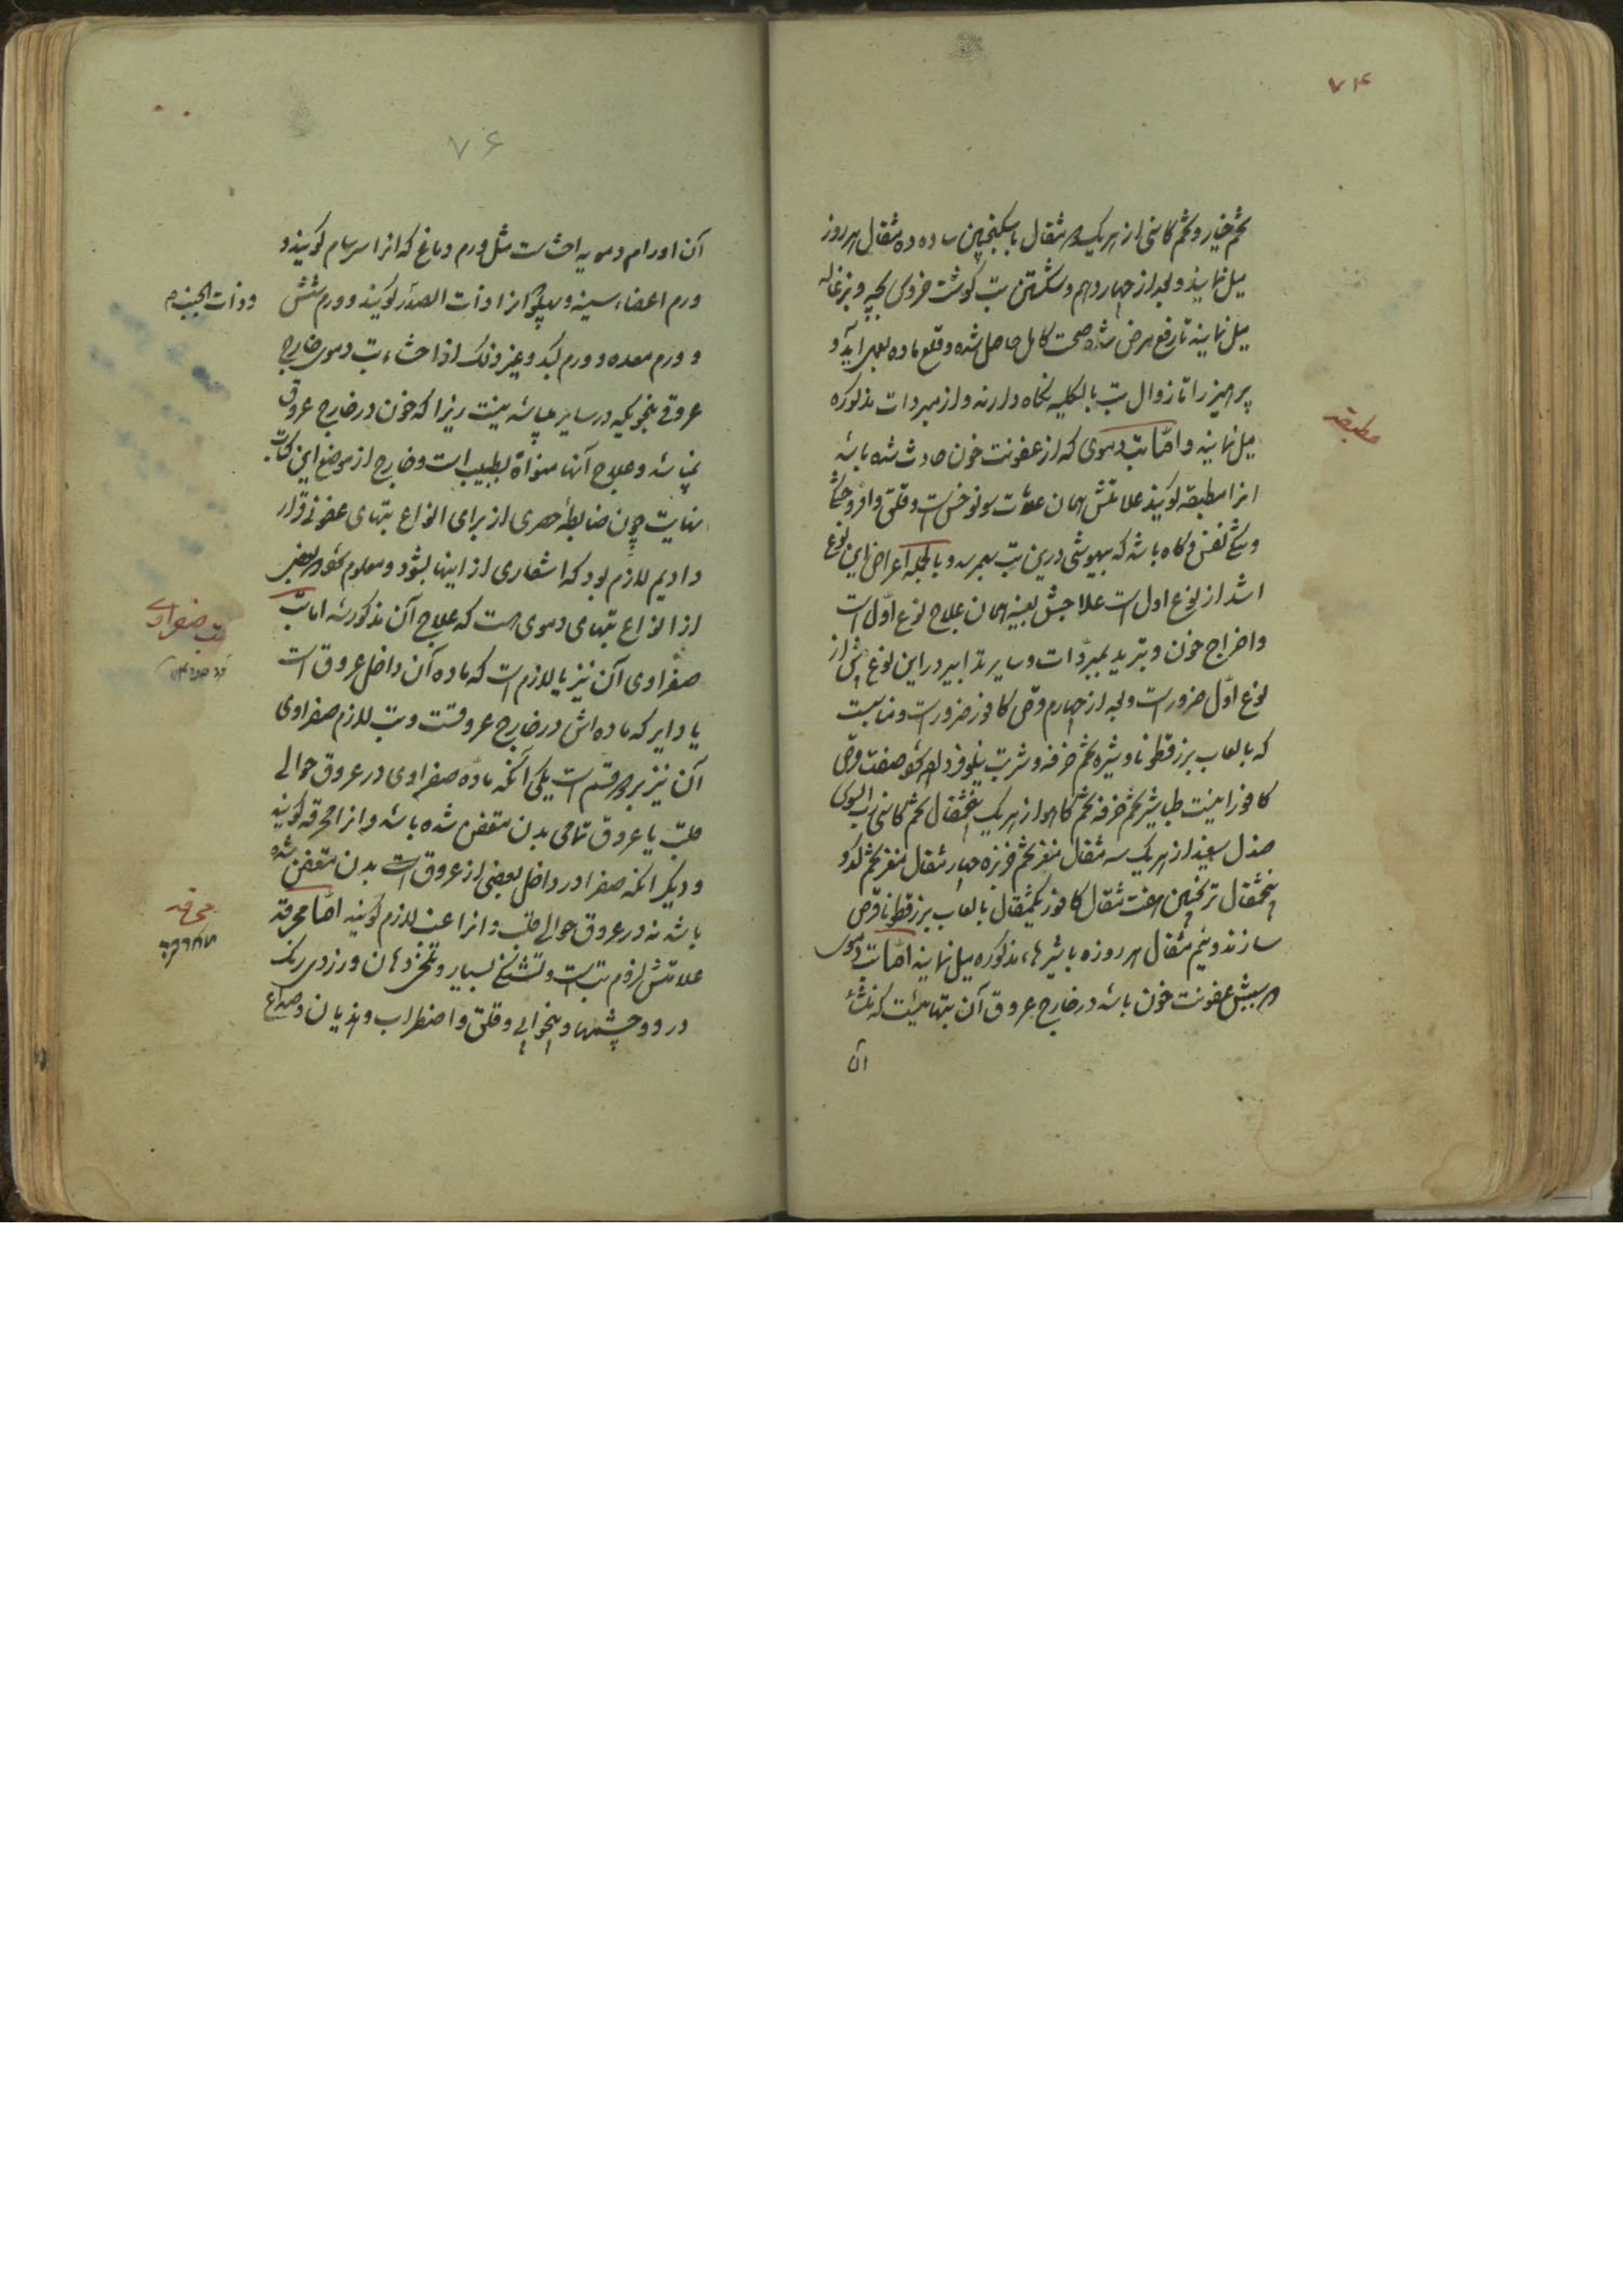 ۷۴
تخم خیار و تخم کاسنی از هریک دو مثقال با سکنجبین ساده ده مثقال هر روز
میل نمایند و بعد از چهاردهم و شکستن تب گوشت خروس بچه و بزغاله
میل نمایند تا رفع مرض شده صحت کامل حاصل شده و قلع ماده بعمل آید و
پرهیز را تا زوال تب بالکلیه نگاه دارند و از مبردات مذکوره
میل نمایند و امّا تب دموی که از عفونت خون حادث شده باشد
مطبقه
انرا مطبقه گویند علامتش همان علامت سونوخس است و قلق و
و تنگی نفس و گاه باشد که بیهوشی درین تب بهمرسد و بالجمله اعراض این نوع
اشد از نوع اول است علاجش بعینه همان علاج نوع اوّل است
و اخراج خون و تبرید بمبرّدات و سایر تدابیر در این نوع بیش از
نوع اوّل ضرور است و بعد از چهارم قرص کافور ضرور است و مناسبست
که با لعاب بزرقطونا و شیره تخم خرفه و شربت نیلوفر داده شود صفت قرص
کافور اینست طباشیر تخم خرفه تخم کاهو از هریک پنجمثقال تخم کاسنی رب السوس
صندل سفید از هریک سه مثقال مغز تخم خربزه چهار مثقال مغز تخم کدو
پنجمثقال ترنجبین هفت مثقال کافور یکمثقال با لعاب بزرقطونا قرص
سازند و نیم مثقال هر روزه با شیرهاء مذکوره میل نمایند امّا تب دموی
که سببش عفونت خون باشد در خارج عروق آن تبهائیست که منشأ
آن
۷۶
آن اورام دمویه احشاست مثل ورم دماغ که انرا سرسام گویند و
ورم اعضاء سینه و پهلو که انرا ذات الصدر گویند و ورم شش
و ذات الجنب
و ورم معده و ورم کبد و غیر ذلک از احشاء تب دموی خارج
عروقی بنحویکه در سایر باشد نیست زیرا که خون در خارج عروق
نمیباشد و علاج آنها منوط بطبیب است و خارج از موضع این کتاب
نهایت چون ضابطه حصری از برای انواع تبهای عفونی قرار
دادیم لازم بود که اشعاری از اینها بشود و معلوم شود که بعضی
از انواع تبهای دموی هست که علاج آن مذکور شد اما تب
تب صفراوی
صفراوی آن نیز یا لازم است که ماده آن داخل عروق است
یا دایر که ماده‌اش در خارج عروقست و تب لازم صفراوی
آن نیز بر دو قسم است یکی آنکه مادّه صفراوی در عروق حوالی
قلب یا عروق تمامی بدن متعفن شده باشد و انرا محرقه گویند
و دیگر انکه صفرا در داخل بعضی از عروق است بدن متعفن شده
باشد نه در عروق حوالی قلب و انرا غب لازم گویند امّا محرقه
محرقه
علامتش لزوم تب است و تشنگی بسیار و تلخی دهان و زردی رنگ
در رو و چشمها و بیخوابی و قلق و اضطراب و هذیان و صداع